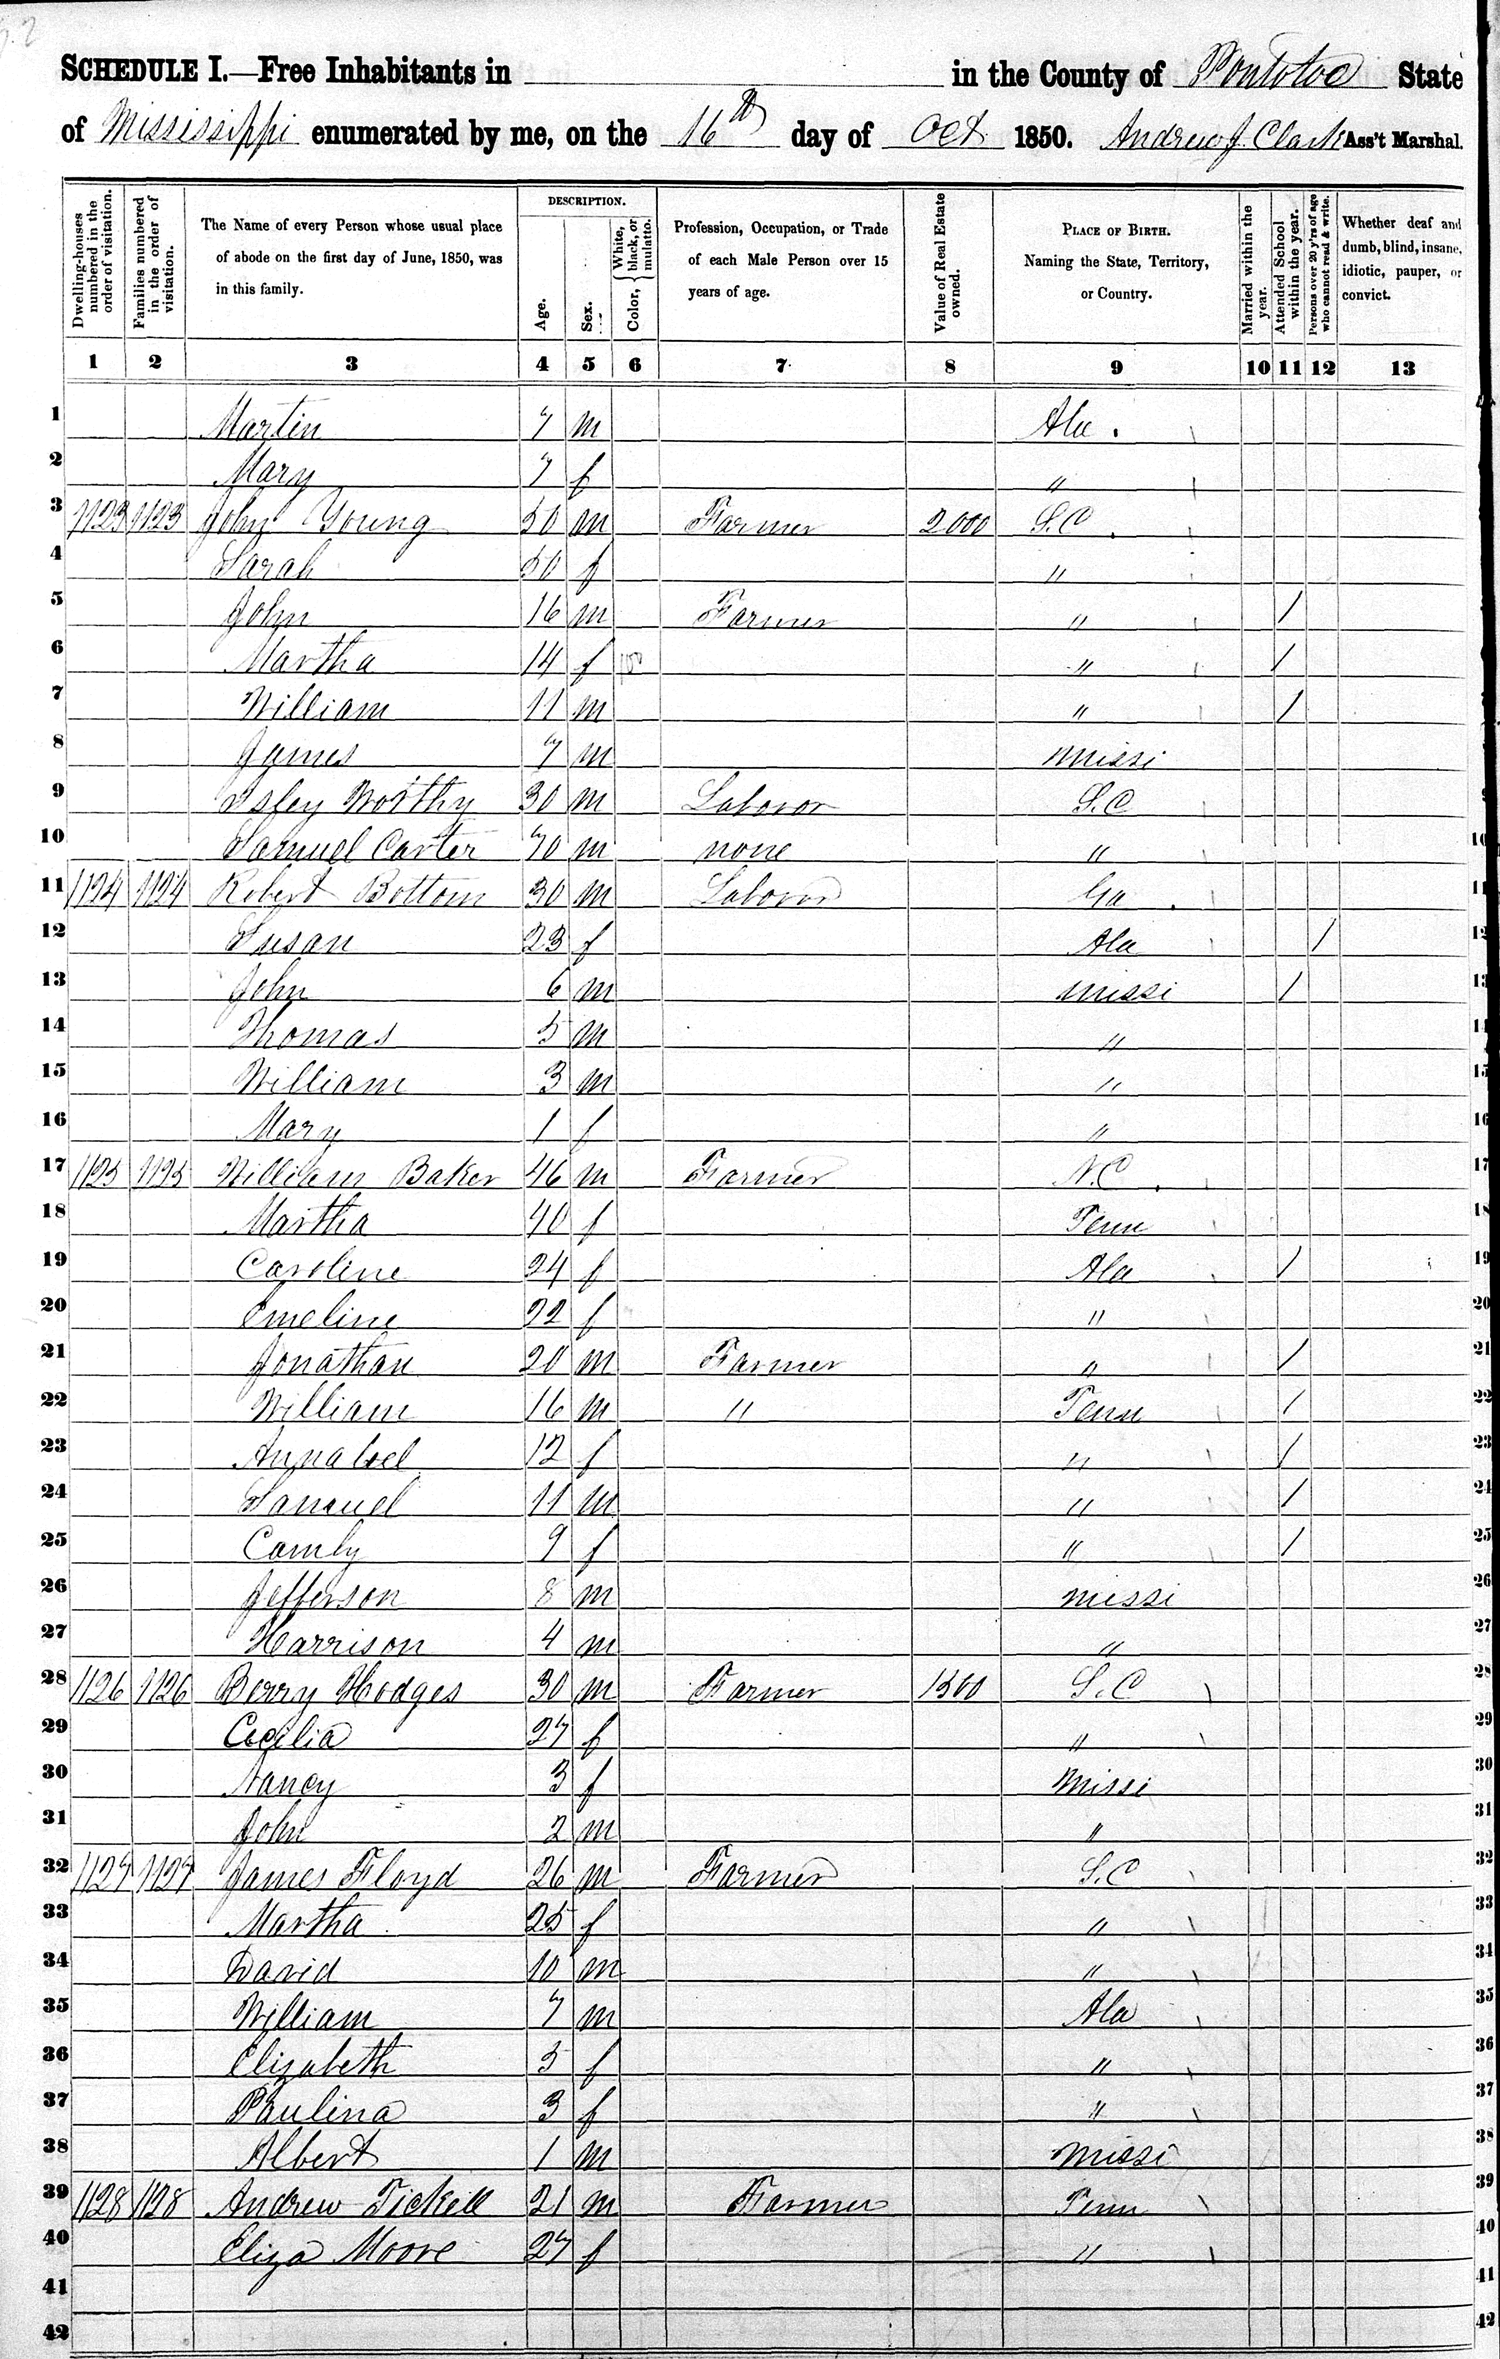 SCHEDULE I.—Free Inhabitants in in the County of Pontotoc State
of Mississippi enumerated by me, on the 16th day of Oct 1850. Andrew J. Clark Ass't Marshal.
Dwelling-houses numbered in the order of visitation.
Families numbered in the order of visitation.
The Name of every Person whose usual place of abode on the first day of June, 1850, was in this family.
DESCRIPTION.
Age.
Sex.
Color, { White, black, or mulatto.
Profession, Occupation, or Trade of each Male Person over 15 years of age.
Value of Real Estate owned.
PLACE OF BIRTH. Naming the State, Territory, or Country.
Married within the year.
Attended School within the year.
Persons over 20 y'rs of age who cannot read & write.
Whether deaf and dumb, blind, insane, idiotic, pauper, or convict.
1 2 3 4 5 6 7 8 9 10 11 12 13
1 Martin 7 m Ala.
2 Mary 7 f "
3 1123 1123 John Young 50 m Farmer 2000 S.C
4 Sarah 50 f "
5 John 16 m Farmer " / 
6 Martha 14 f " /
7 William 11 m " /
8 James 7 m Missi
9 Isley Worthy 30 m Laboror S.C
10 Samuel Carter 70 m none " 10
11 1124 1124 Robert Bottom 30 m Laboror Ga 11
12 Susan 23 f Ala / 12
13 John 6 m Missi / 13
14 Thomas 5 m " 14
15 William 3 m " 15
16 Mary 1 f " 16
17 1125 1125 William Baker 46 m Farmer N.C 17
18 Martha 40 f Tenn 18
19 Caroline 24 f Ala / 19
20 Emeline 22 f " 20
21 Jonathan 20 m Farmer " / 21
22 William 16 m " Tenn / 22
23 Annabel 12 f " / 23
24 Samuel 11 m " / 24
25 Camly 9 f " / 25
26 Jefferson 8 m Missi 26
27 Harrison 4 m " 27
28 1126 1126 Berry Hodges 30 m Farmer 1500 S.C 28
29 Cecilia 27 f " 29
30 Nancy 3 f Missi 30
31 John 2 m " 31
32 1127 1127 James Floyd 26 m Farmer S.C 32
33 Martha 25 f " 33
34 David 10 m " 34
35 William 7 m Ala 35
36 Elizabeth 5 f " 36
37 Paulina 3 f " 37
38 Albert 1 m Missi 38
39 1128 1128 Andrew Tickell 21 m Farmer Tenn 39
40 Eliza Moore 27 f " 40
41 41
42 42